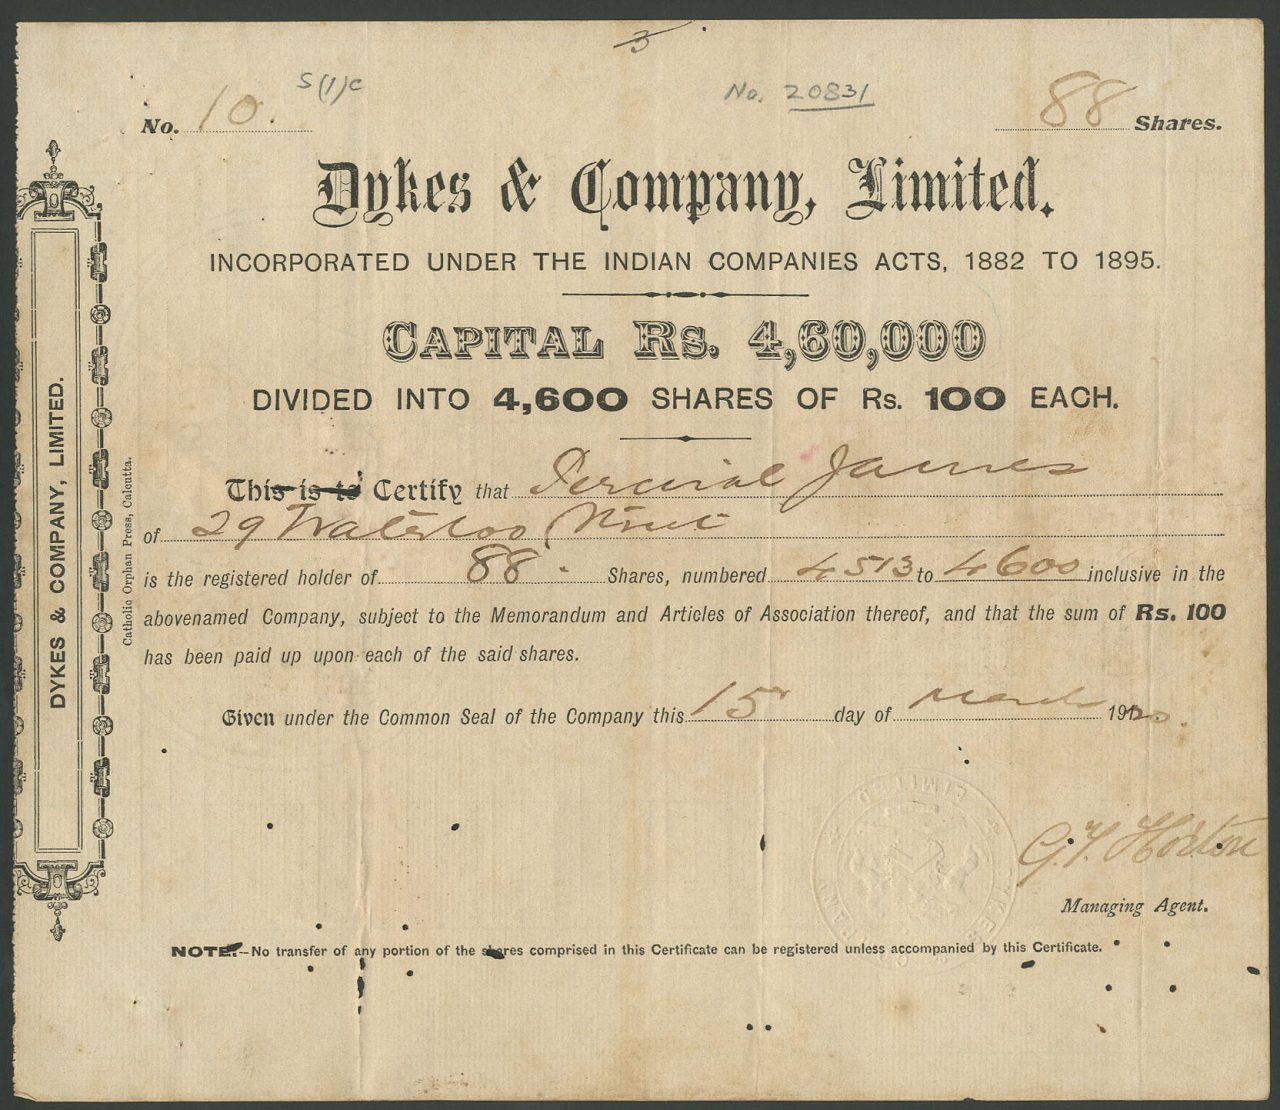 3
No. 10. S(1)c No. 20831 88 Shares.
Dykes & Company, Limited.
INCORPORATED UNDER THE INDIAN COMPANIES ACTS, 1882 TO 1895.
CAPITAL RS. 4,60,000
DIVIDED INTO 4,600 SHARES OF Rs. 100 EACH.
This is to Certify that Percival James
of 29 Waterloo Street
is the registered holder of 88. Shares, numbered 4513 to 4600 inclusive in the
abovenamed Company, subject to the Memorandum and Articles of Association thereof, and that the sum of Rs. 100
has been paid up upon each of the said shares.
Given under the Common Seal of the Company this 15 day of March 19
LIMITED
G. F. Horton
Managing Agent.
NOTE.—No transfer of any portion of the shares comprised in this Certificate can be registered unless accompanied by this Certificate.
DYKES & COMPANY, LIMITED.
Catholic Orphan Press, Calcutta.